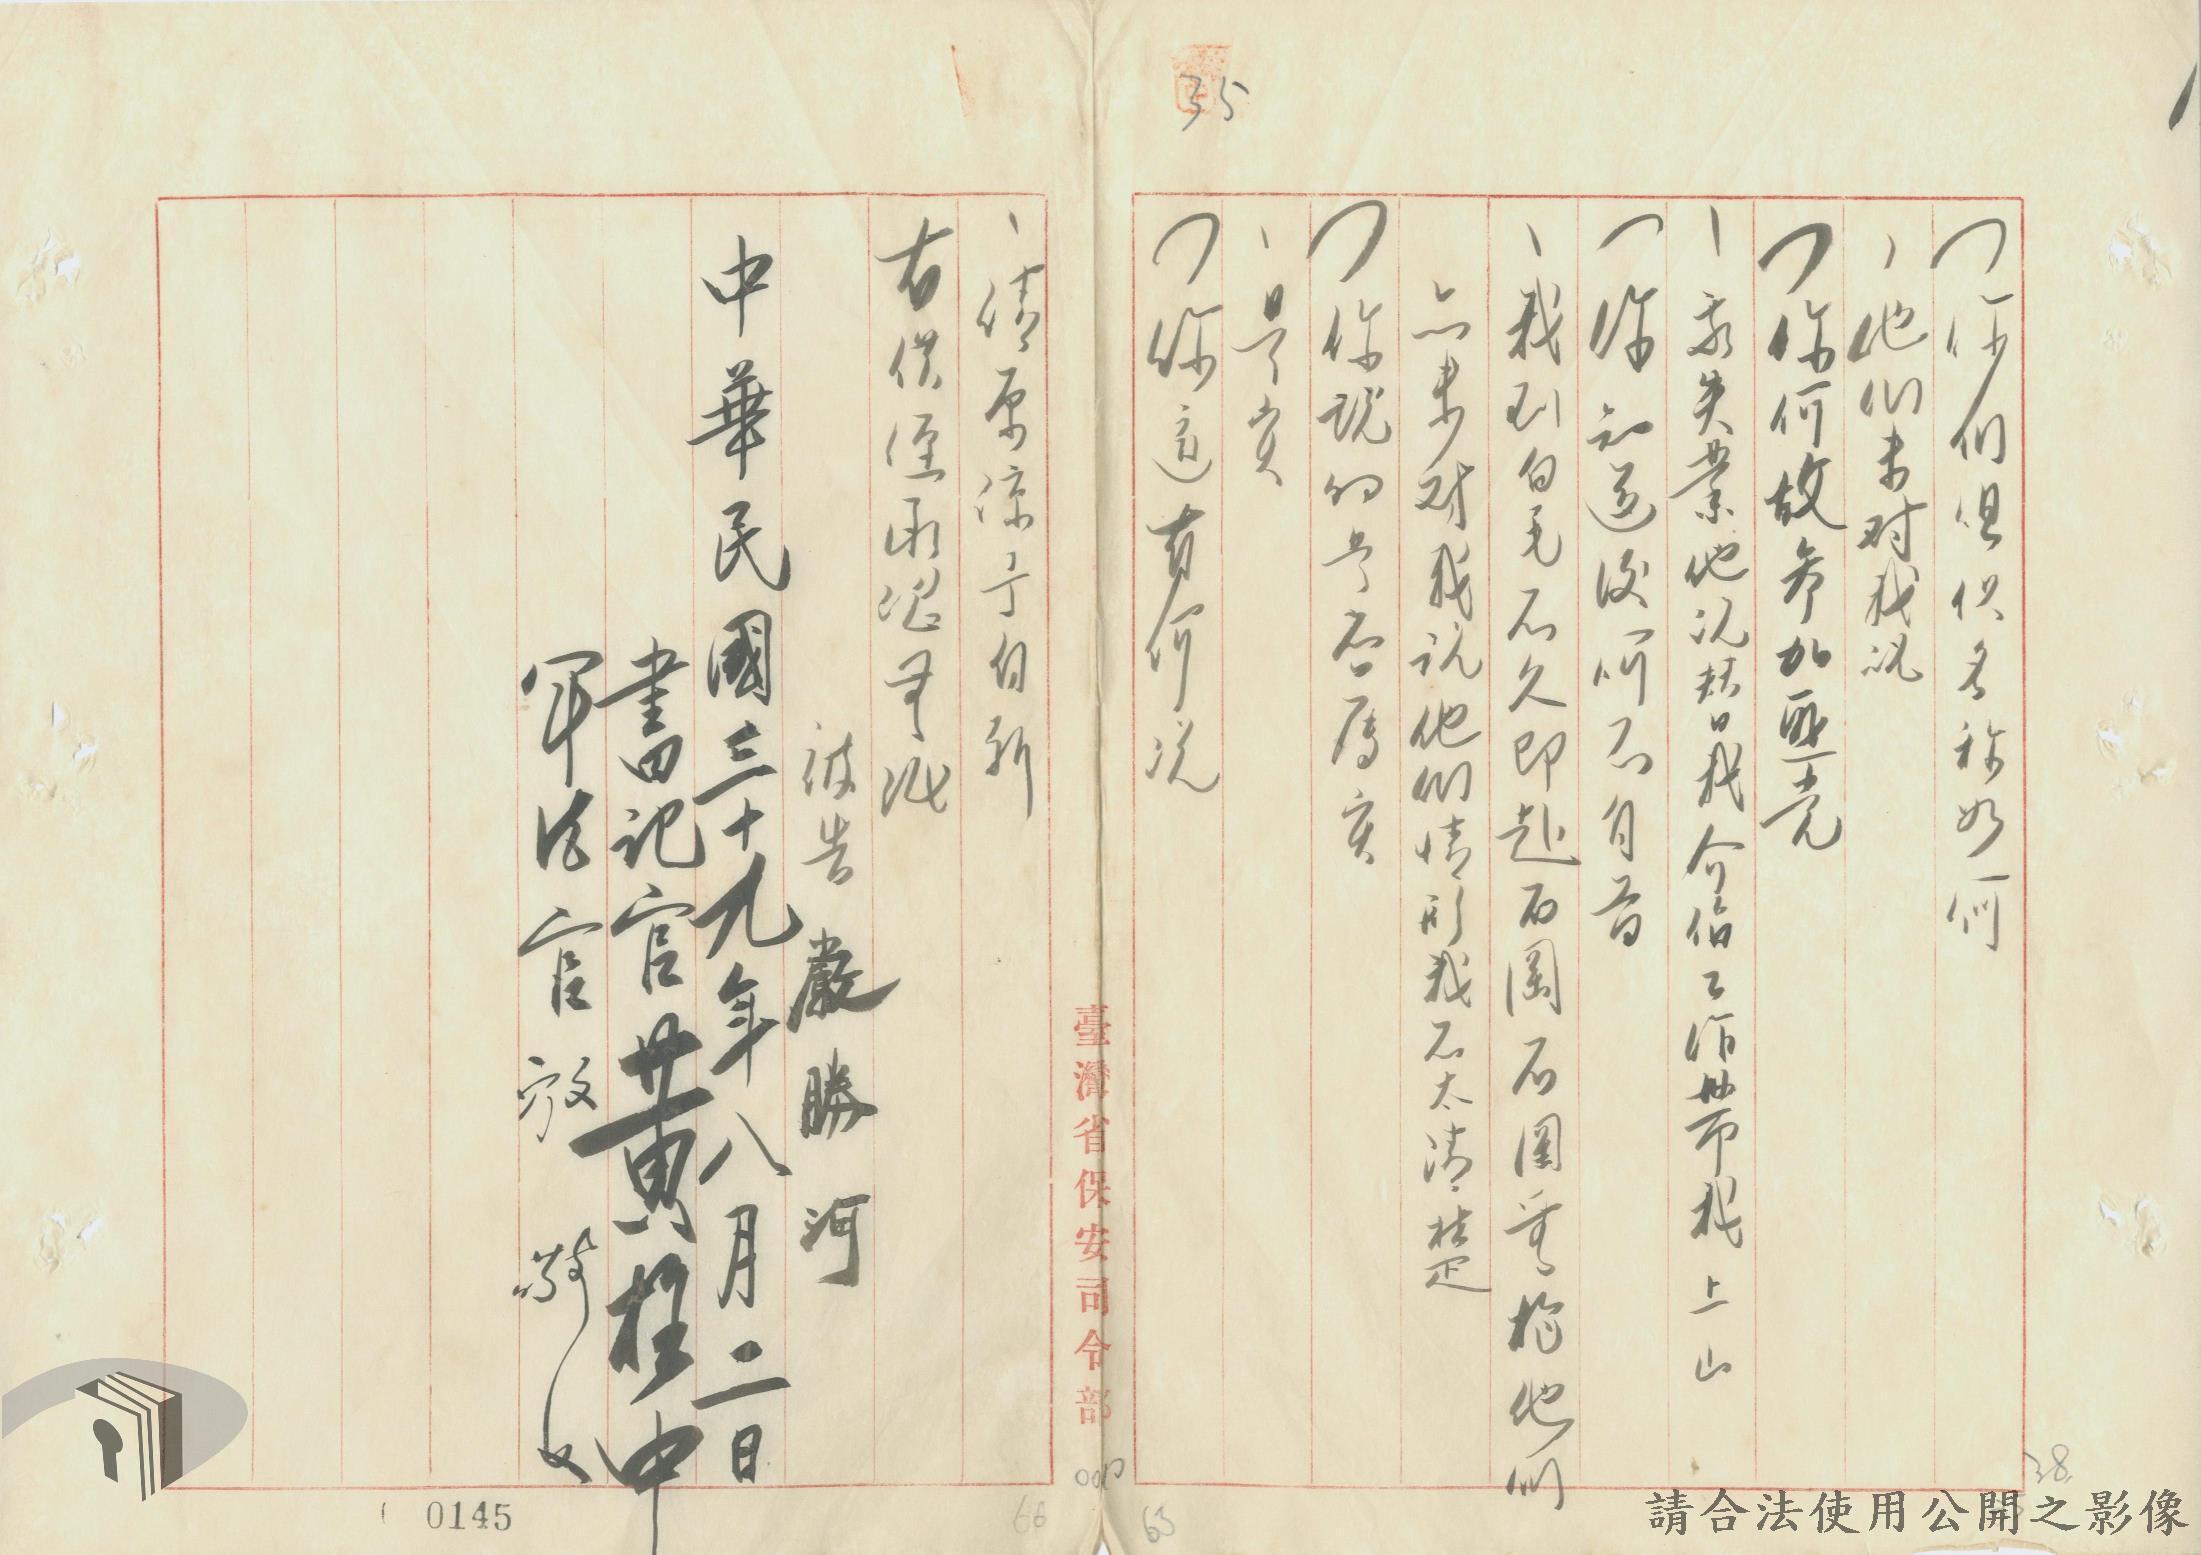 35
你們組織名稱如何
他們未對我說
你何故參加匪黨
我失業他說替我介紹工作帶我上山
你知道後何不自首
我到白毛不久即赴石圍石圍無機他們
亦未對我說他們情形我不太清楚
你說的是否屬實
是實
你還有何說
請原諒予自新
右供經承認無訛
被告 嚴勝河
中華民國三十九年八月二日
書記官 黃柱中
軍法官
臺灣省保安司令部
0145
66
65
38
請合法使用公開之影像